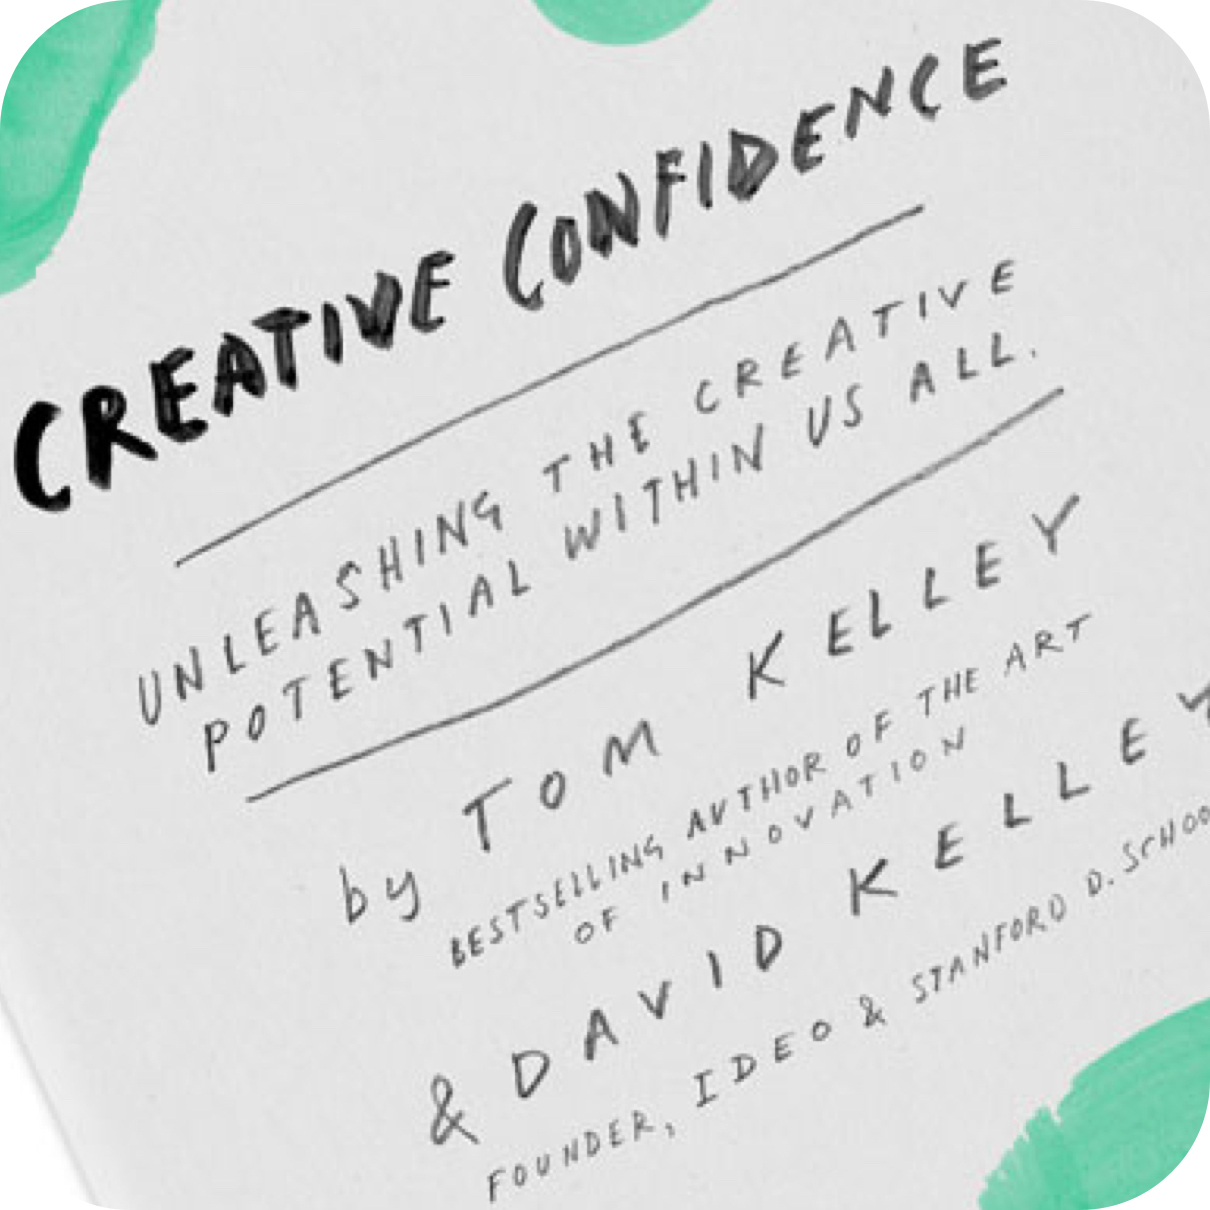 CREATIVE CONFIDENCE
UNLEASHING THE CREATIVE
POTENTIAL WITHIN US ALL.
by TOM KELLEY
BESTSELLING AUTHOR OF THE ART
OF INNOVATION
& DAVID KELLEY
FOUNDER, IDEO & STANFORD D. SCHOO